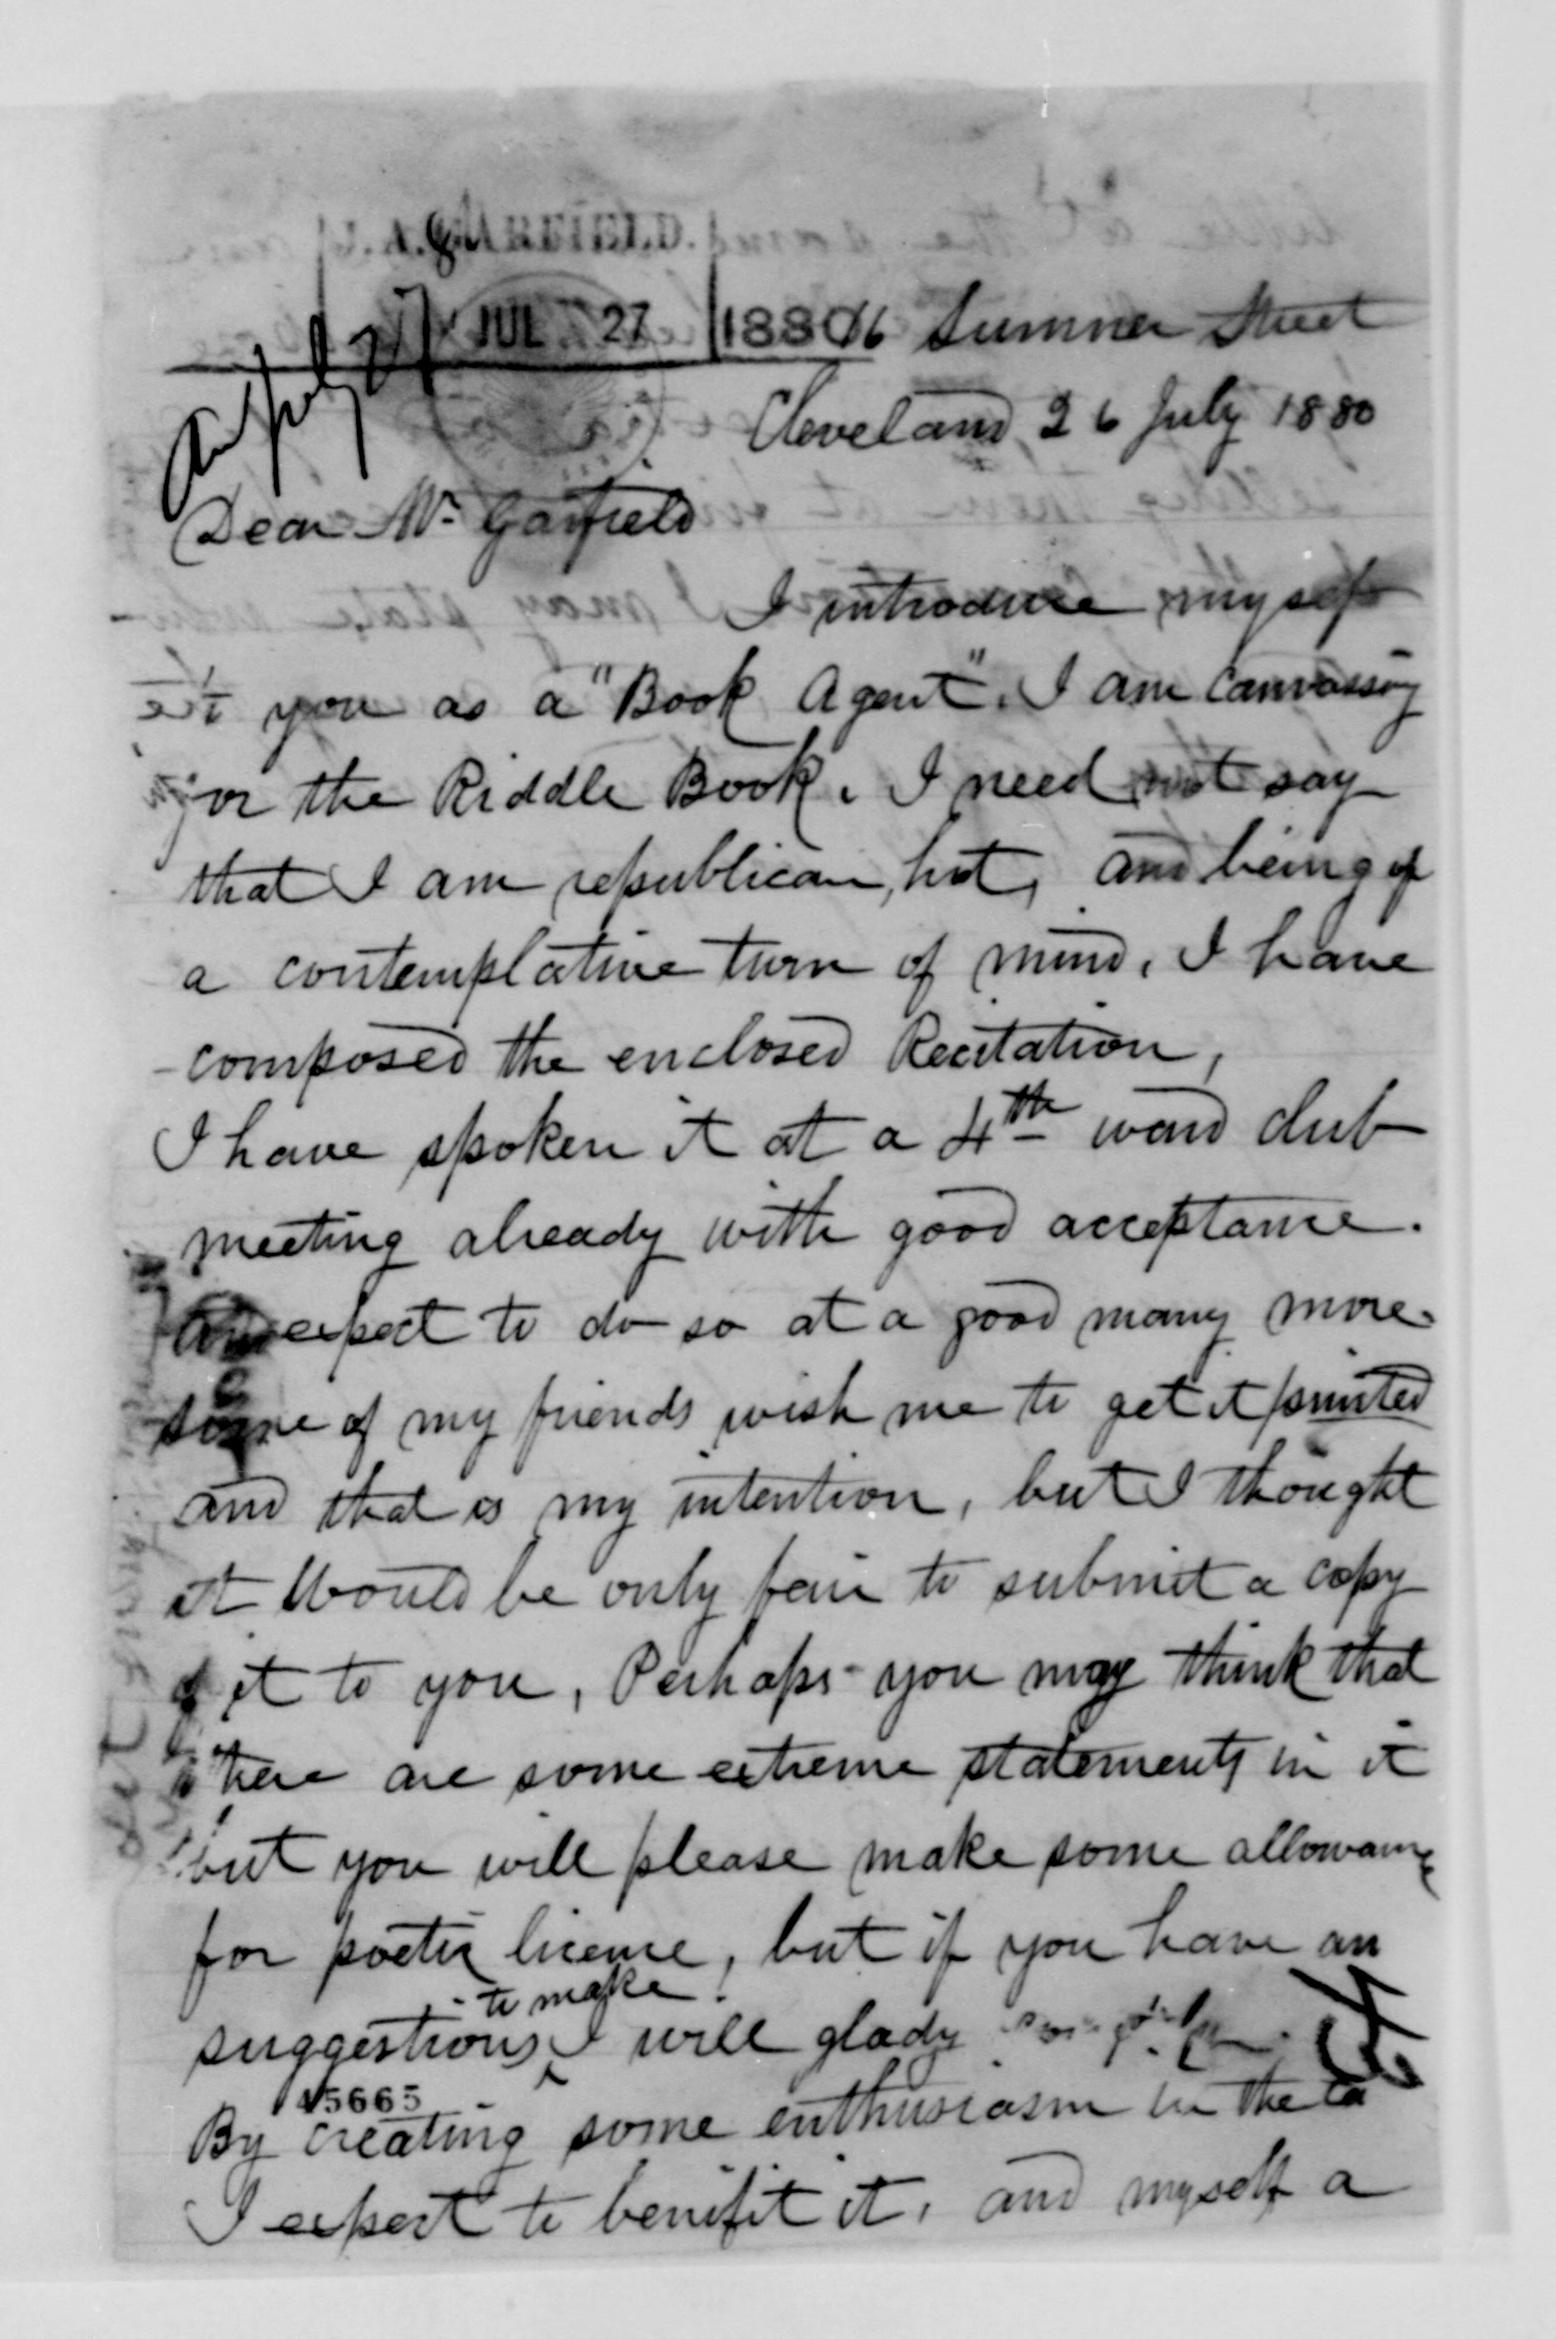 J.A. GARFIELD.
JUL 27 1880
Ans July 27
Sumner Street
Cleveland 26 July 1880
Dear Mr Garfield
I introduce myself
to you as a "Book Agent". I am canvassing
for the Riddle Book. I need not say
that I am republican, hot, and being of
a contemplative turn of mind, I have
composed the enclosed Recitation,
I have spoken it at a 4th ward club
meeting already with good acceptance.
and expect to do so at a good many more.
some of my friends wish me to get it printed
and that is my intention, but I thought
it would be only fair to submit a copy
of it to you, Perhaps you may think that
there are some extreme statements in it
but you will please make some allowance
for poetic license, but if you have an
to make
suggestions I will glady
45665
By creating some enthusiasm in the
I expect to benifit it, and myself a